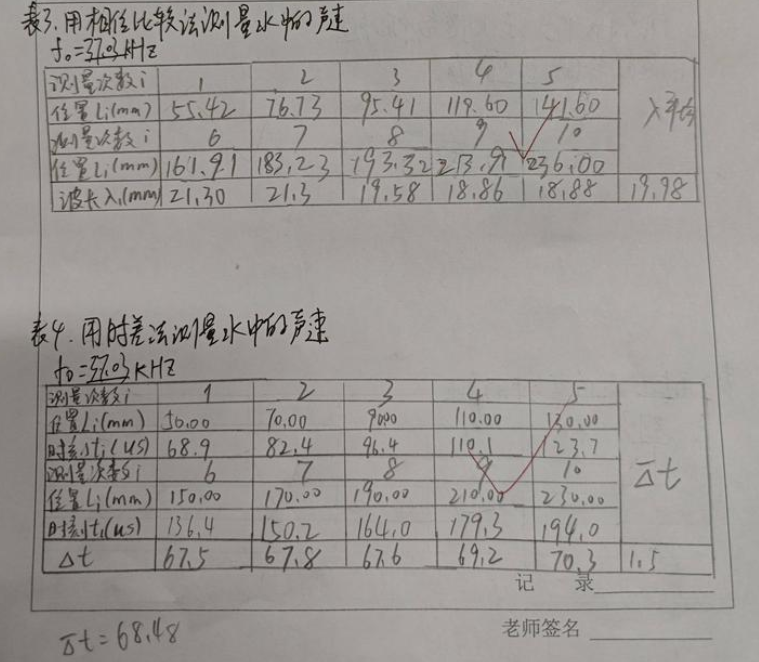 表3.用相位比较法测量水中的声速
f₀=37.03KHZ
测量次数i 1 2 3 4 5 λ平均
位置Li(mm) 55.42 76.73 95.41 119.60 141.60
测量次数i 6 7 8 9 10
位置Li(mm) 161.91 183.23 193.32 213.91 236.00
波长λi(mm) 21.30 21.3 19.58 18.86 18.88 19.98
表4.用时差法测量水中的声速
f₀=37.03KHZ
测量次数i 1 2 3 4 5
位置Li(mm) 50.00 70.00 90.00 110.00 130.00
时刻ti(us) 68.9 82.4 96.4 110.1 123.7
测量次数i 6 7 8 9 10 Δt
位置Li(mm) 150.00 170.00 190.00 210.00 230.00
时刻ti(us) 136.4 150.2 164.0 179.3 194.0
Δt 67.5 67.8 67.6 69.2 70.3 1.5
记 录
Δt=68.48
老师签名